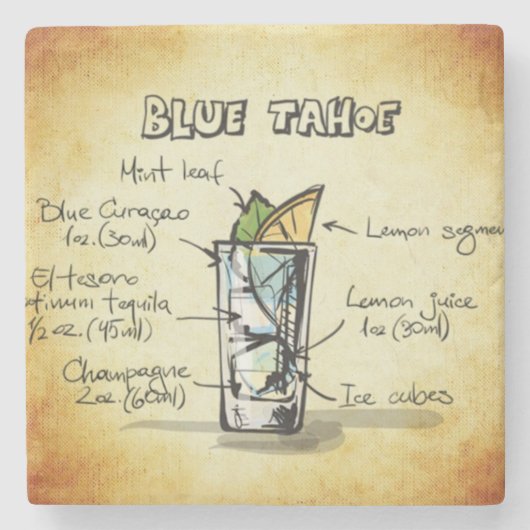 BLUE TAHOE
Mint leaf
Blue Curaçao
1oz. (30ml)
El tesoro
tinum tequila
1/2 oz. (45ml)
Champagne
2oz. (60ml)
Lemon segmen
Lemon juice
1oz (30ml)
Ice cubes